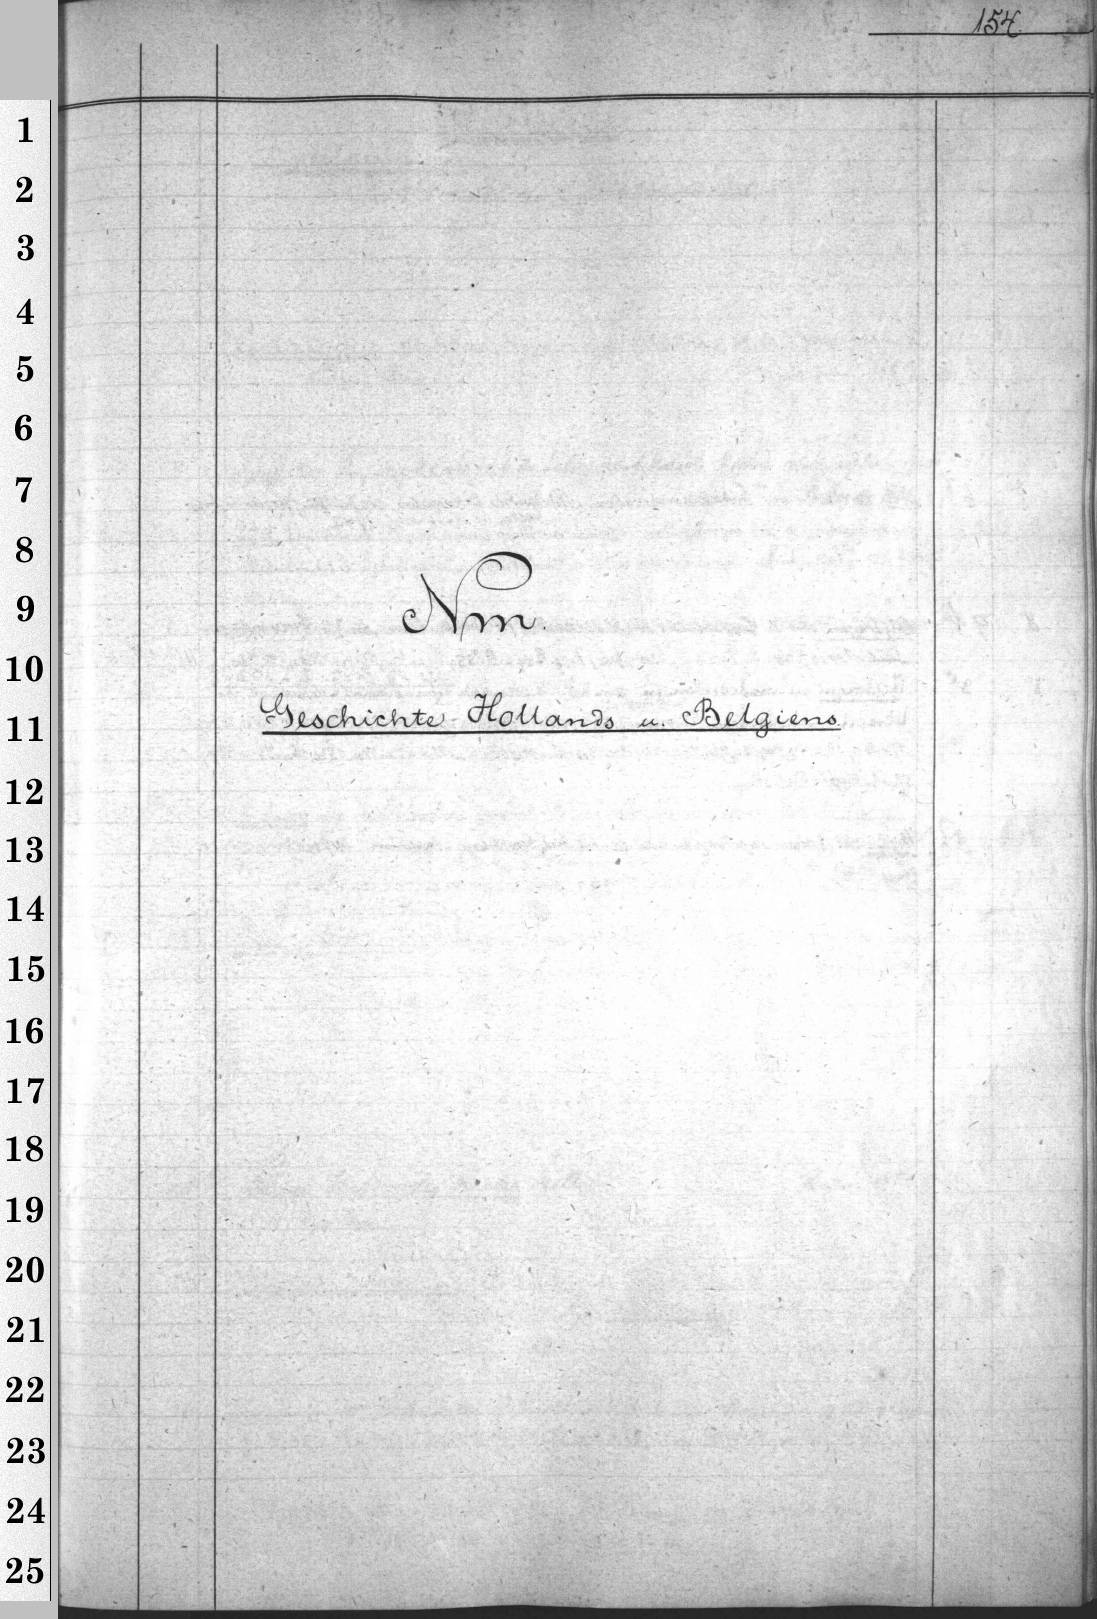 154
1
2
3
4
5
6
7
8
Nm
9
10
Geschichte Hollands u. Belgiens
11
12
13
14
15
16
17
18
19
20
21
22
23
24
25